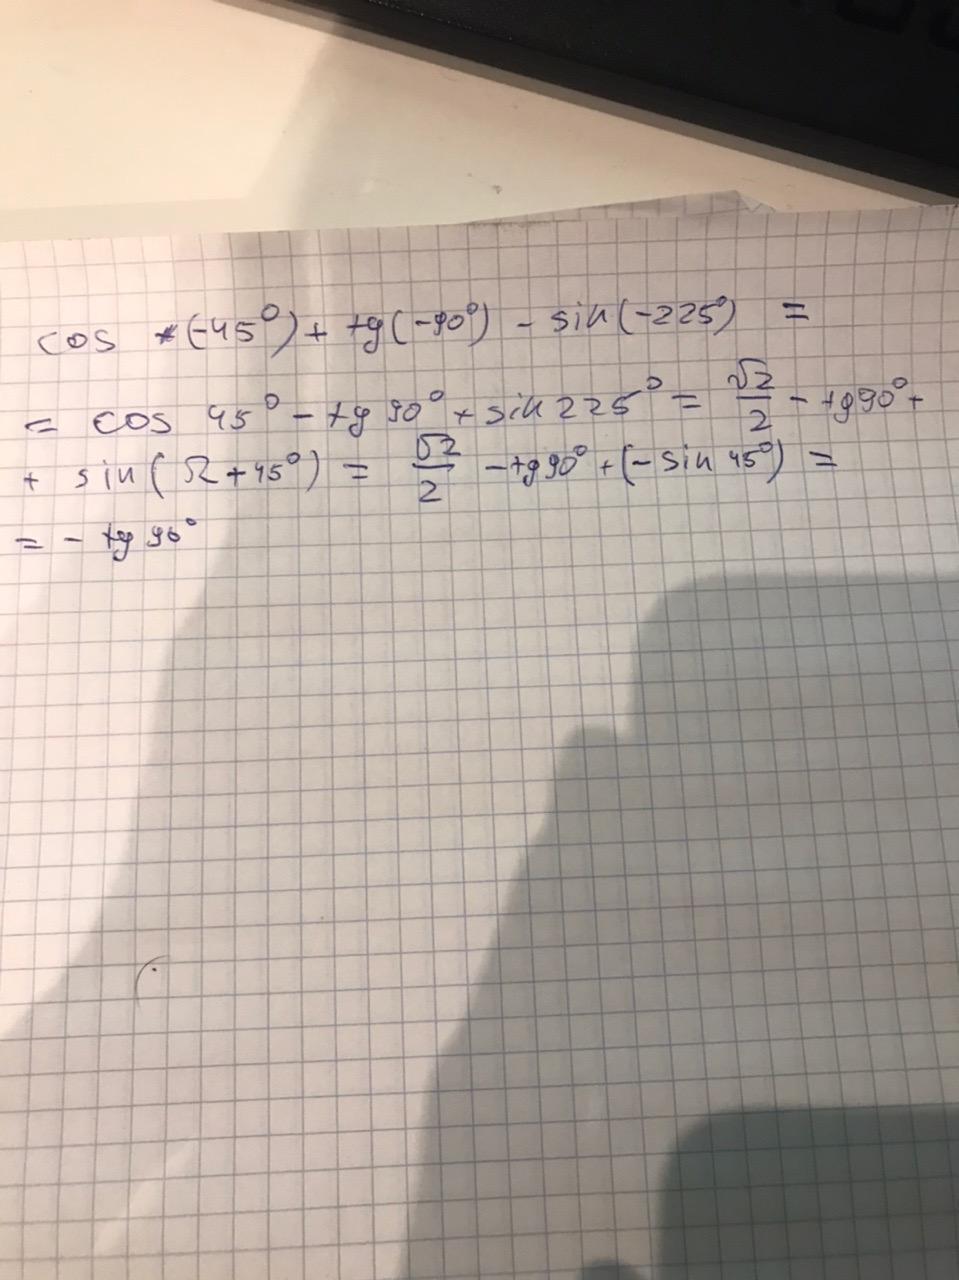 cos (-45°) + tg(-90°) - sin(-225°) =
= cos 45° - tg 90° + sin 225° = √2/2 - tg90° +
+ sin(π+45°) = √2/2 - tg90° + (- sin 45°) =
= - tg 90°